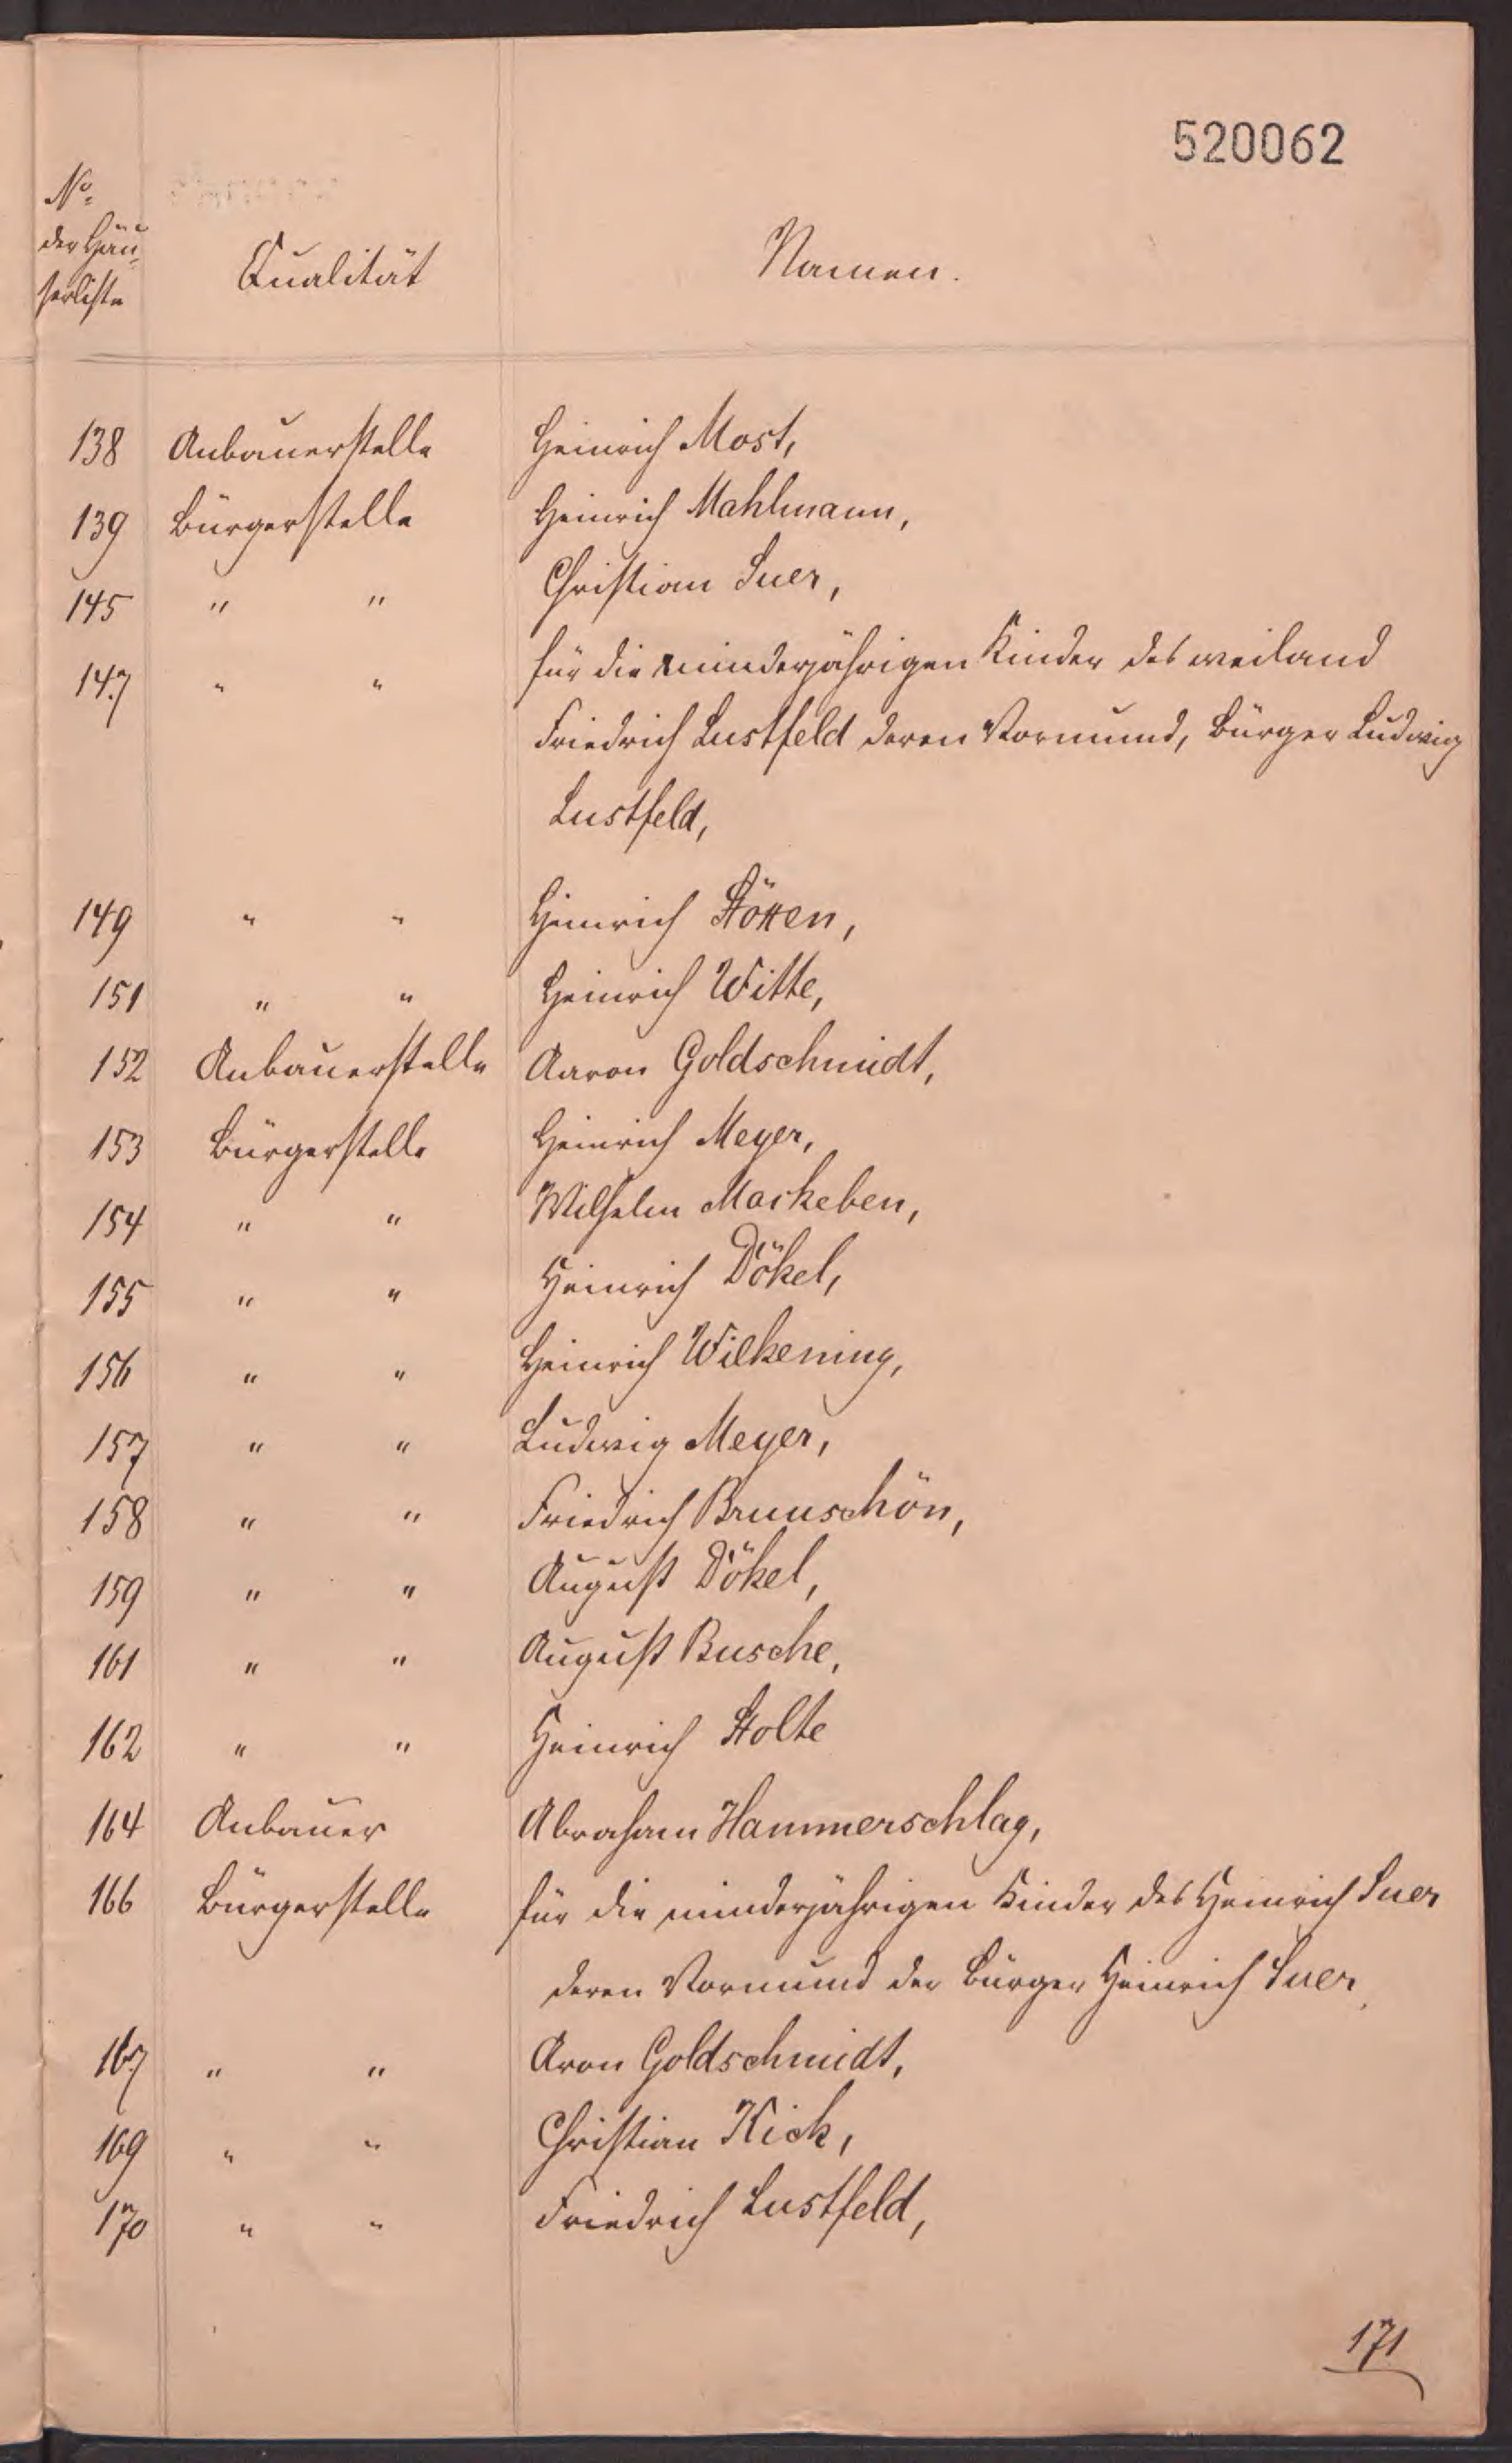 520062
No.
der Häu-
serliste
Qualität
Namen.
138 Anbauerstelle Heinrich Most,
139 Bürgerstelle Heinrich Mahlmann,
145 " " Christian Suer,
147 " " für die minderjährigen Kinder des weiland
Friedrich Lustfeld deren Vormund, Bürger Ludwig
Lustfeld,
149 " " Heinrich Stöxen,
151 " " Heinrich Witte,
152 Anbauerstelle Aaron Goldschmidt,
153 Bürgerstelle Heinrich Meyer,
154 " " Wilhelm Markeben,
155 " " Heinrich Dökel,
156 " " Heinrich Wilkening,
157 " " Ludwig Meyer,
158 " " Friedrich Brunschön,
159 " " August Dökel,
161 " " August Busche,
162 " " Heinrich Stolte
164 Anbauer Abraham Hammerschlag,
166 Bürgerstelle für die minderjährigen Kinder des Heinrich Suer
deren Vormund der Bürger Heinrich Suer,
167 " " Aron Goldschmidt,
169 " " Christian Kick,
170 " " Friedrich Lustfeld,
171